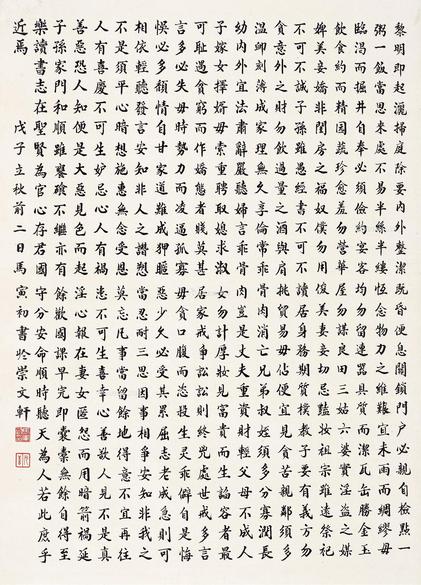 黎明即起灑掃庭除要内外整潔既昏便息關鎖門户必親自檢點一
粥一飯當思來處不易半絲半縷恆念物力之維艱宜未雨而綢繆毋
臨渴而掘井自奉必須儉約宴客切勿留連器具質而潔瓦缶勝金玉
飲食約而精園蔬珍愈羞勿營華屋勿謀良田三姑六婆實淫盜之媒
婢美妾嬌非閨房之福奴僕勿用俊美妻妾切忌豔妝祖宗雖遠祭祀
不可不誠子孫雖愚經書不可不讀居身務期質樸教子要有義方勿
貪意外之財勿飲過量之酒與肩挑貿易毋佔便宜見貧苦親鄰須多
溫卹刻薄成家理無久享倫常乖骨肉消亡兄弟叔姪須多分寡潤長
幼内外宜法肅辭嚴聽婦言乖骨肉豈是丈夫重資財輕父母不成人
子嫁女擇婿毋索重聘娶媳求淑女勿計厚妝見富貴而生諂容者最
可恥遇貧窮而作驕態者賤莫甚居家戒爭訟訟則終凶處世戒多言
言多必失毋恃勢力而凌逼孤寡毋貪口腹而恣殺生靈乖僻自是悔
悞必多頹惰自甘家道難成狎暱惡少久必受其累屈志老成急則可
相依輕聽發言安知非人之譖愬當忍耐三思因事相爭安知非我之
不是須平心暗想施惠無念受恩莫忘凡事當留餘地得意不宜再往
人有喜慶不可生妒忌心人有禍患不可生喜幸心善欲人見不是真
善惡恐人知便是大惡見色而起淫心報在妻女匿怨而用暗箭禍延
子孫家門和順雖饔飧不繼亦有餘歡國課早完即囊橐無餘自得至
樂讀書志在聖賢為官心存君國守分安命順時聽天為人若此庶乎
近焉 戊子立秋前二日馬寅初書於崇文軒